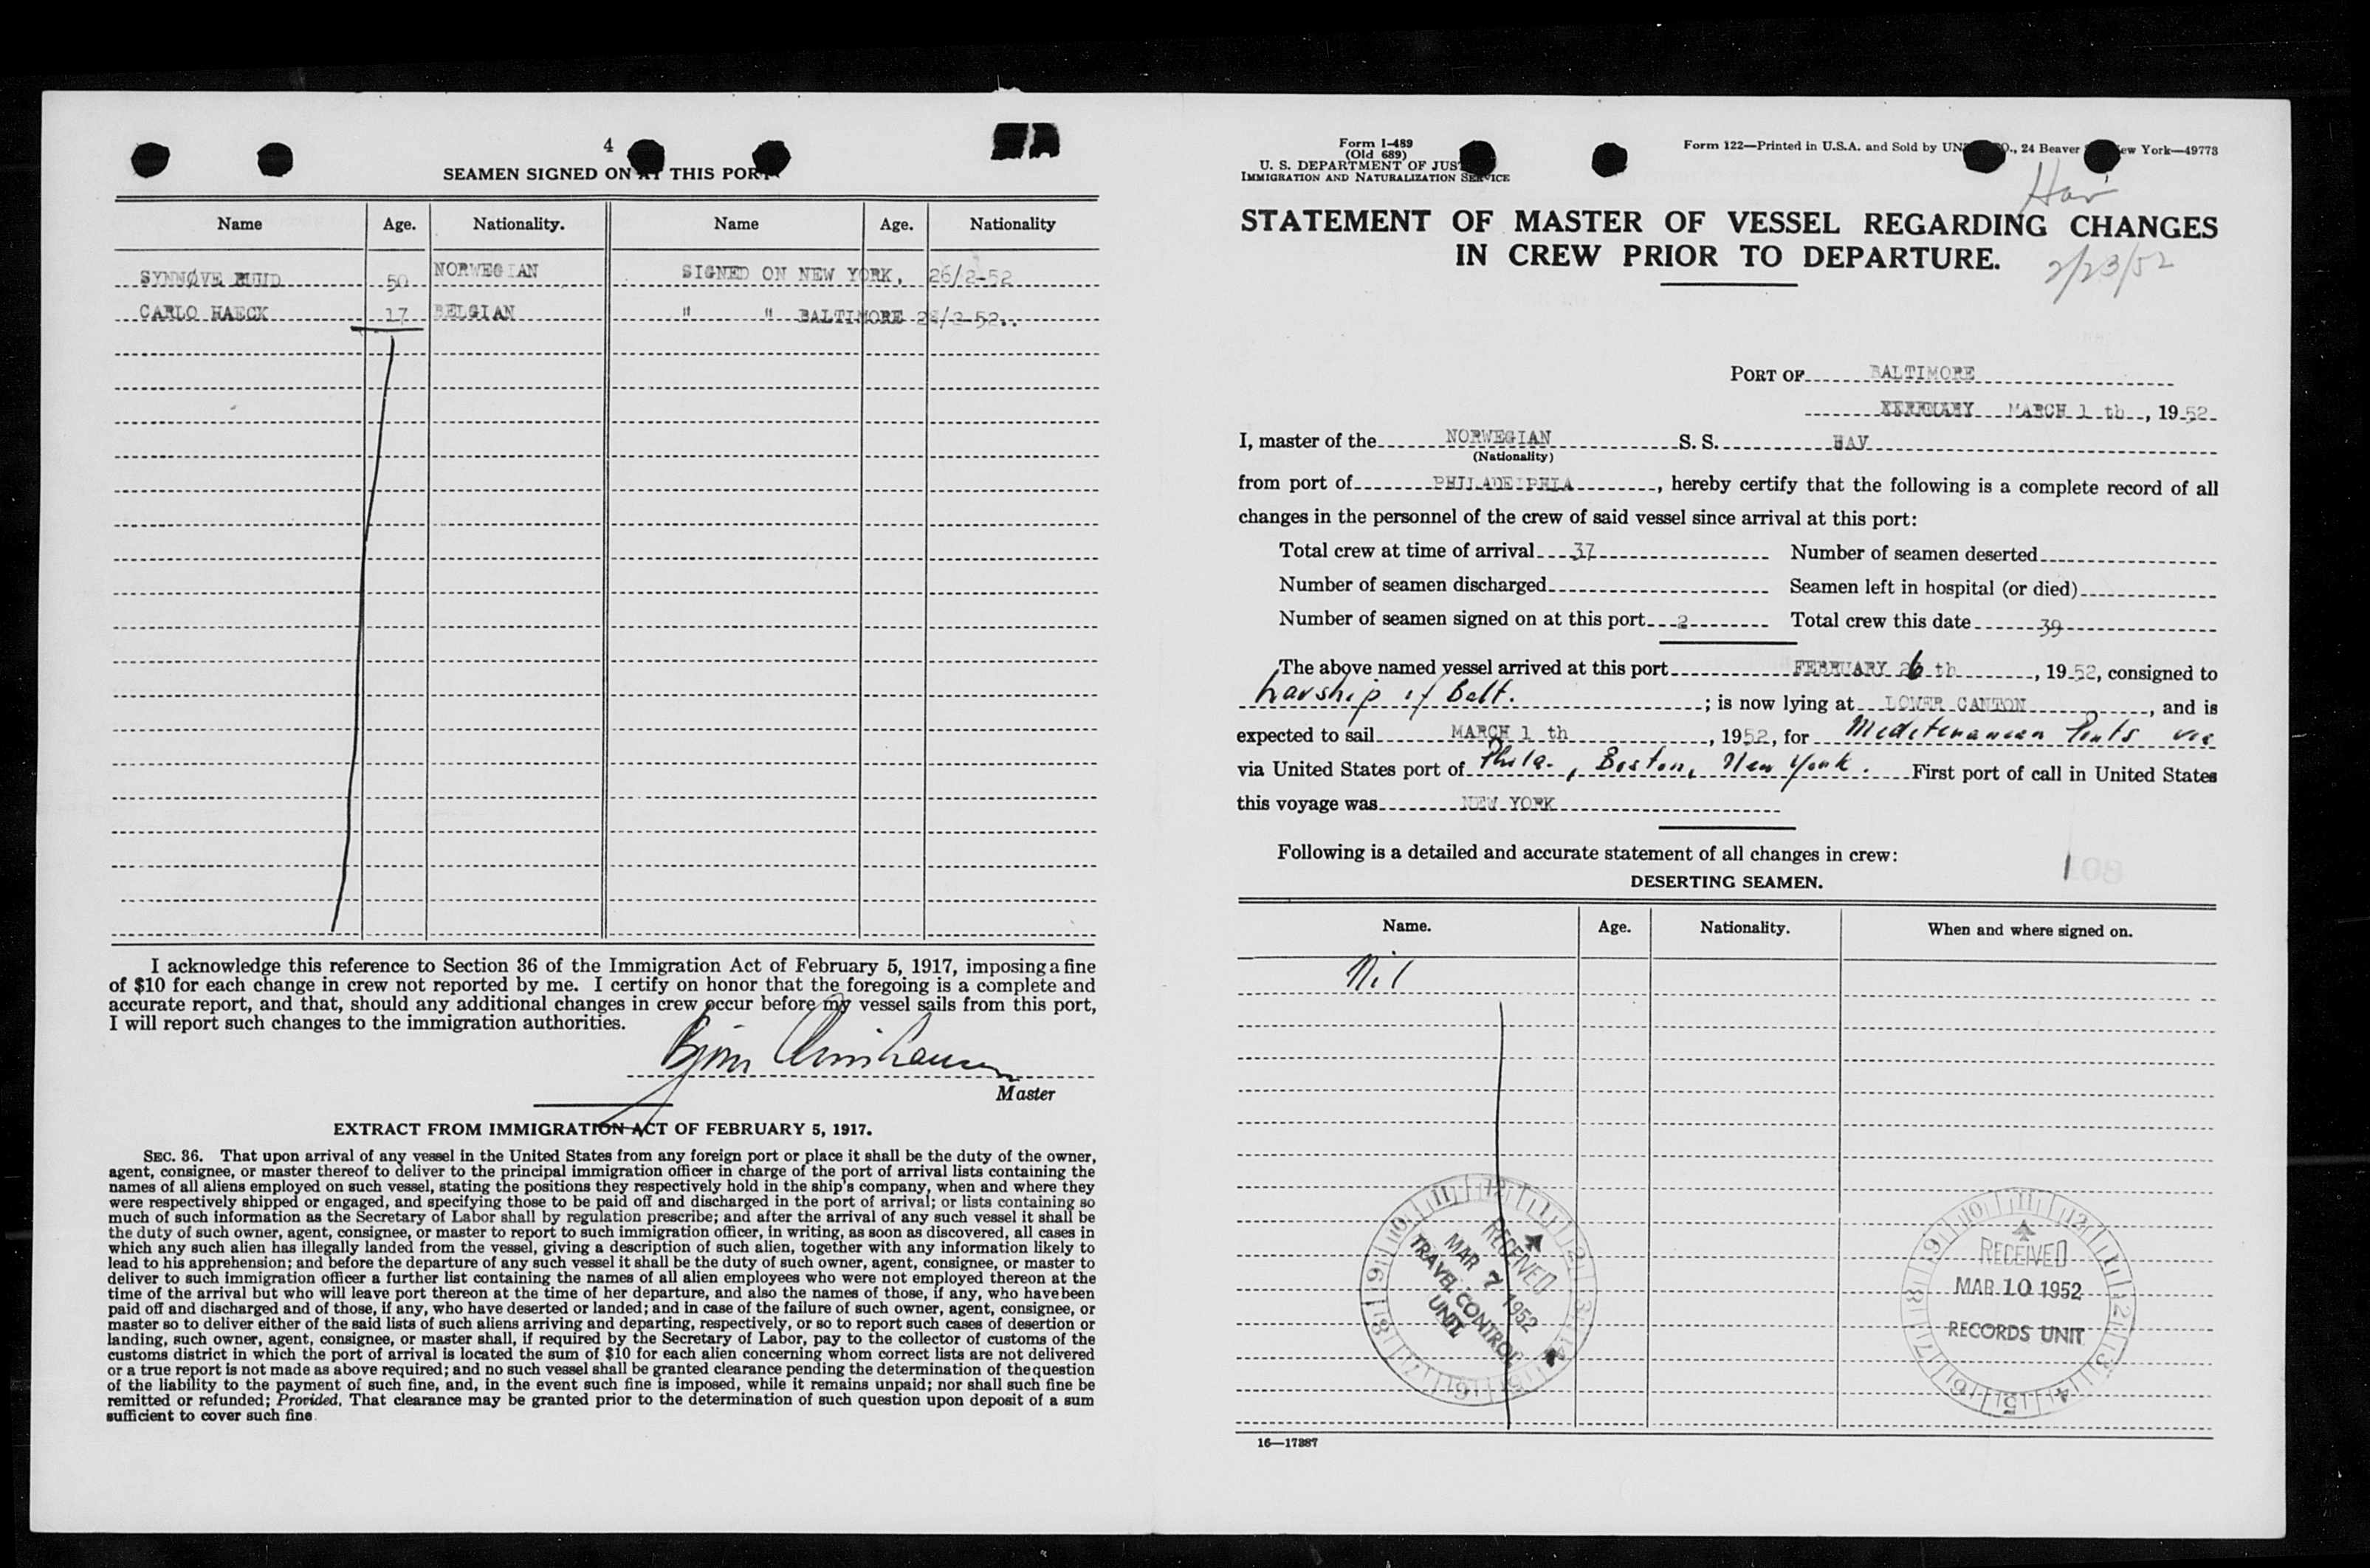 4
SEAMEN SIGNED ON AT THIS PORT
Name Age. Nationality. Name Age. Nationality
SYNNØVE RUUD 50 NORWEGIAN SIGNED ON NEW YORK, 26/2-52
CARLO HAECK 17 BELGIAN " " BALTIMORE /2-52..
I acknowledge this reference to Section 36 of the Immigration Act of February 5, 1917, imposing a fine
of $10 for each change in crew not reported by me. I certify on honor that the foregoing is a complete and
accurate report, and that, should any additional changes in crew occur before my vessel sails from this port,
I will report such changes to the immigration authorities.
Master
EXTRACT FROM IMMIGRATION ACT OF FEBRUARY 5, 1917.
SEC. 36. That upon arrival of any vessel in the United States from any foreign port or place it shall be the duty of the owner,
agent, consignee, or master thereof to deliver to the principal immigration officer in charge of the port of arrival lists containing the
names of all aliens employed on such vessel, stating the positions they respectively hold in the ship's company, when and where they
were respectively shipped or engaged, and specifying those to be paid off and discharged in the port of arrival; or lists containing so
much of such information as the Secretary of Labor shall by regulation prescribe; and after the arrival of any such vessel it shall be
the duty of such owner, agent, consignee, or master to report to such immigration officer, in writing, as soon as discovered, all cases in
which any such alien has illegally landed from the vessel, giving a description of such alien, together with any information likely to
lead to his apprehension; and before the departure of any such vessel it shall be the duty of such owner, agent, consignee, or master to
deliver to such immigration officer a further list containing the names of all alien employees who were not employed thereon at the
time of the arrival but who will leave port thereon at the time of her departure, and also the names of those, if any, who have been
paid off and discharged and of those, if any, who have deserted or landed; and in case of the failure of such owner, agent, consignee, or
master so to deliver either of the said lists of such aliens arriving and departing, respectively, or so to report such cases of desertion or
landing, such owner, agent, consignee, or master shall, if required by the Secretary of Labor, pay to the collector of customs of the
customs district in which the port of arrival is located the sum of $10 for each alien concerning whom correct lists are not delivered
or a true report is not made as above required; and no such vessel shall be granted clearance pending the determination of the question
of the liability to the payment of such fine, and, in the event such fine is imposed, while it remains unpaid; nor shall such fine be
remitted or refunded; Provided, That clearance may be granted prior to the determination of such question upon deposit of a sum
sufficient to cover such fine.
Form I-489
(Old 689)
U. S. DEPARTMENT OF JUS
IMMIGRATION AND NATURALIZATION SERVICE
Form 122—Printed in U.S.A. and Sold by UN O., 24 Beaver ew York—49773
Hav
STATEMENT OF MASTER OF VESSEL REGARDING CHANGES
IN CREW PRIOR TO DEPARTURE.
2/23/52
PORT OF BALTIMORE
MARCH 1 th, 1952
I, master of the NORWEGIAN S. S. HAV
(Nationality)
from port of PHILADELPHIA, hereby certify that the following is a complete record of all
changes in the personnel of the crew of said vessel since arrival at this port:
Total crew at time of arrival 37 Number of seamen deserted
Number of seamen discharged Seamen left in hospital (or died)
Number of seamen signed on at this port 2 Total crew this date 39
The above named vessel arrived at this port FEBRUARY 26 th, 1952, consigned to
Havship of Balt. ; is now lying at LOWER CANTON, and is
expected to sail MARCH 1 th, 1952, for Mediterranean Ports via
via United States port of Phila., Boston, New York. First port of call in United States
this voyage was NEW YORK
Following is a detailed and accurate statement of all changes in crew:
DESERTING SEAMEN.
Name. Age. Nationality. When and where signed on.
Nil
RECEIVED
MAR 7 1952
TRAVEL CONTROL
UNIT
RECEIVED
MAR 10 1952
RECORDS UNIT
16—17387